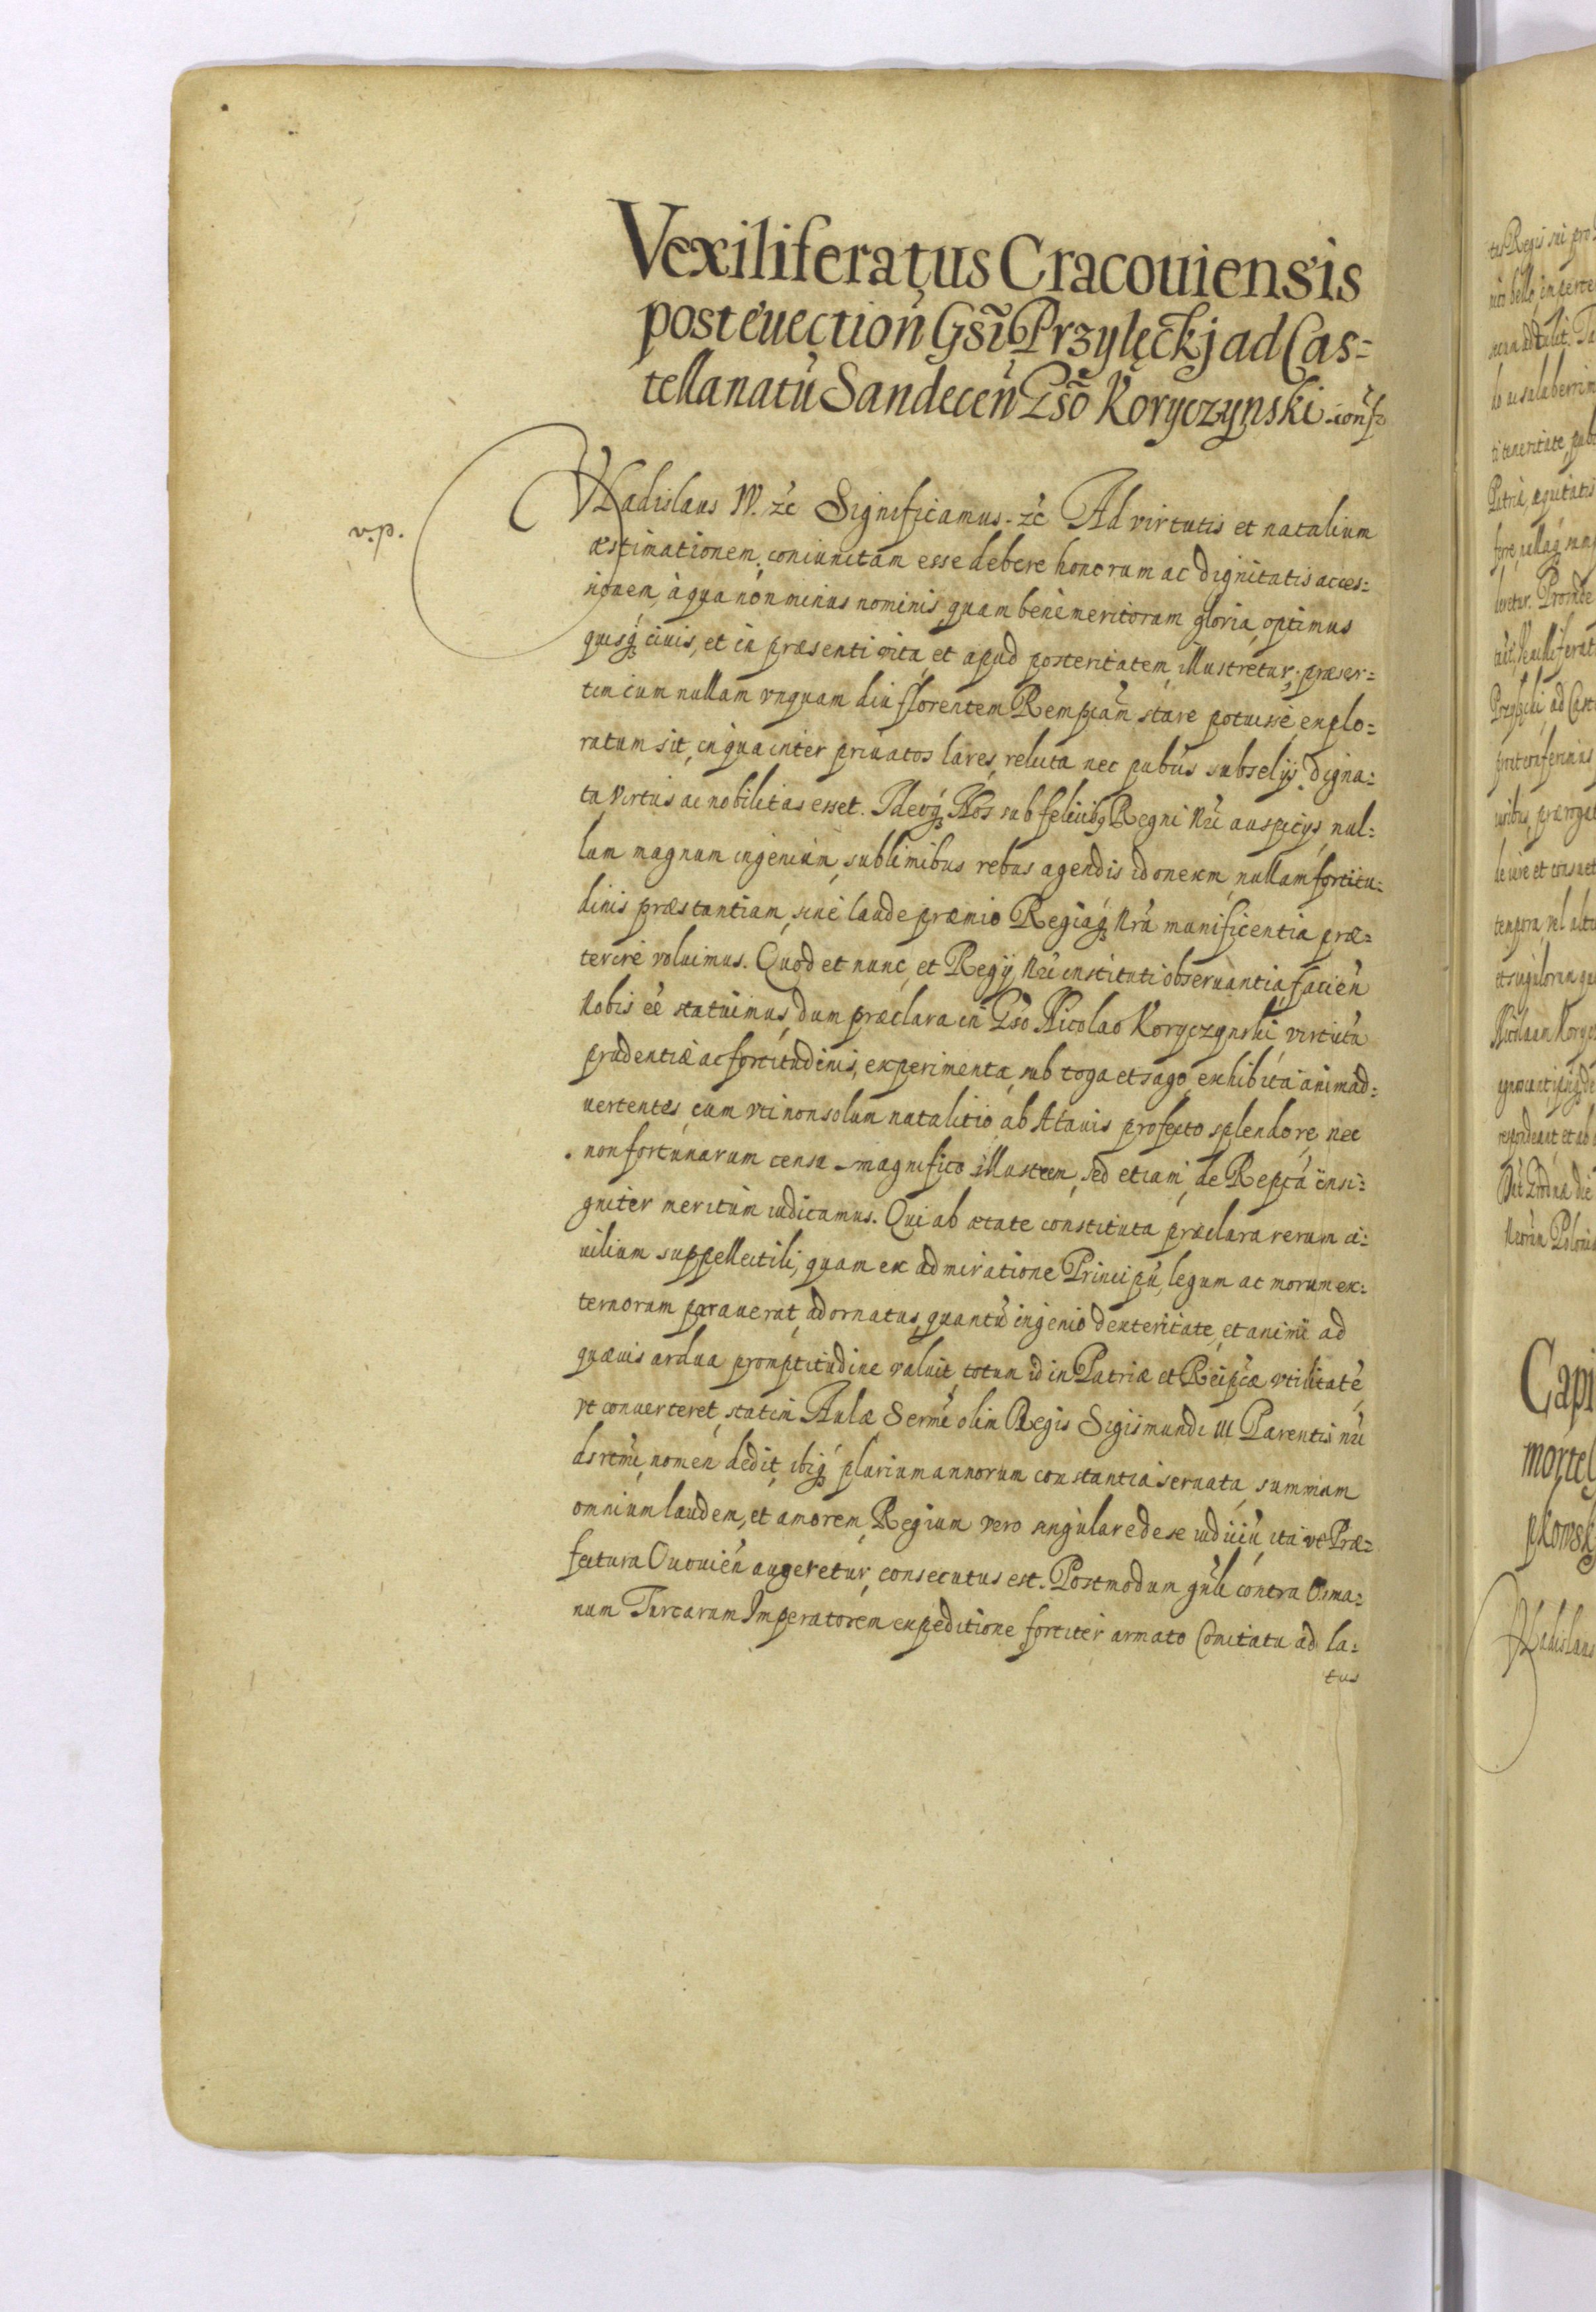 Vexiliferatus Cracouiensis
post euection Gsi Przyłęckj ad Cas=
tellanatu Sandecen Gso Koryczynski conf
v.p.
Vladislaus IV. zc Significamus. zc Ad virtutis et natalium
æstimationem, coniunctam esse debere honorum ac dignitatis acces=
sionem, à qua non minus nominis, quam benemeritorum gloria, optimus
quisq ciuis, et in præsenti vita, et apud posteritatem, illustretur; præser=
tim cum nullam vnquam diu florentem Rempcam stare potuisse, explo=
ratum sit, in qua inter priuatos lares, relicta nec pubcis subselijs digna=
ta virtus ac nobilitas esset. Ideoq Nos sub felicibq Regni nri auspicijs, nul=
lum magnum ingenium, sublimibus rebus agendis idoneum, nullam fortitu=
dinis præstantiam, sine laude præmio Regiaq nra munificentia præ=
terire voluimus. Quod et nunc, et Regij nri instituti obseruantia, facien
Nobis ee statuimus, dum præclara in Gso Nicolao Koryczynski virtutu
prudentiæ ac fortitudinis, experimenta, sub toga et sago exhibita animad=
uertentes, eum vti non solum natalitio ab Atauis profecto splendore, nec
non fortunarum censu magnifico illustrem, sed etiam, de Repca insi=
gniter meritum iudicamus. Qui ab ætate constituta præclara rerum ci=
uilium suppellectili, quam ex admiratione Principu, legum ac morum ex=
ternorum parauerat, adornatus, quantu ingenio dexteritate, et animi ad
quæuis ardua promptitudine valuit, totum id in Patriæ et Reipcæ vtilitate,
vt conuerteret, statim Aulæ Sermi olim Regis Sigismundi III Parentis nri
dsrmi, nomen dedit, ibiq plurium annorum constantia seruata, summam
omnium laudem, et amorem, Regium vero singulare de se iudiciu, ita vt Præ=
fectura Ououien augeretur, consecutus est. Postmodum gnli contra Osma=
num Turcarum Imperatorem expeditione fortiter armato Comitatu ad la=
tus